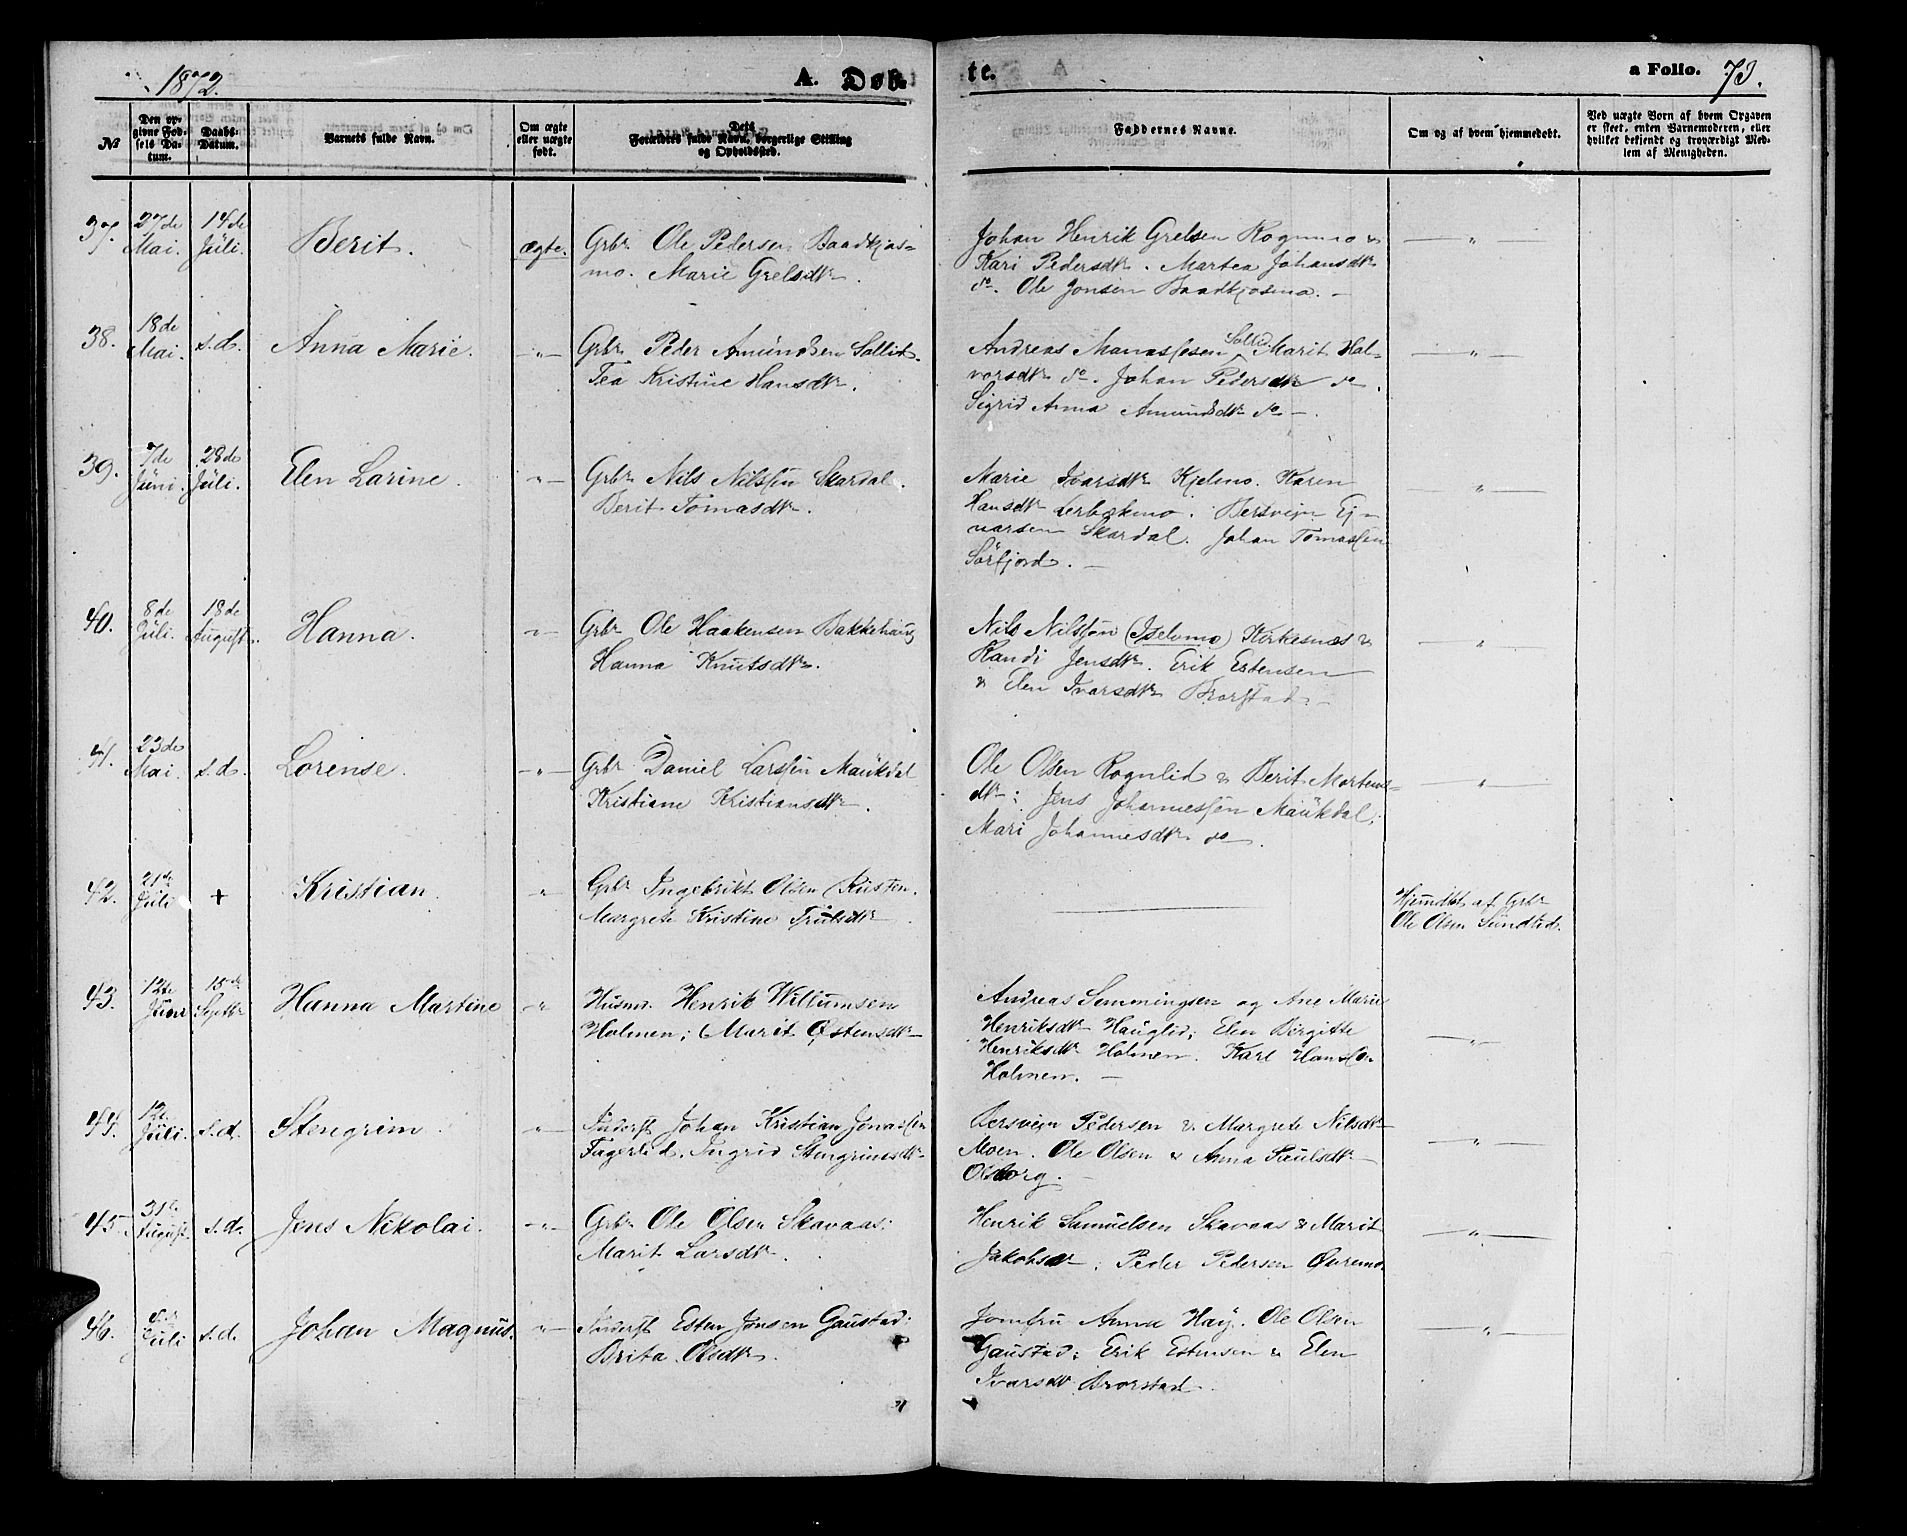 1872.
A. Døb
te.
a Folio. 73.
№
Den opgivne Fødsels Datum.
Daabs-Datum.
Barnets fulde Navn.
Om ægte eller uægte født.
Dets Forældres fulde Navn, borgerlige Stilling og Opholdssted.
Faddernes Navne.
Om og af hvem hjemmedøbt.
Ved uægte Børn af hvem Opgaven er skeet, enten Barnemoderen, eller hvilket bekjendt og troværdigt Medlem af Menigheden.
37. 27de Mai. 14de Juli. Berit. ægte.
Grbr. Ole Pedersen Baadkjos-
mo. Marie Grelsdtr.
Johan Henrik Grelsen Rognmo &
Kari Pedersdtr. Martea Johansdtr
do. Ole Jonsen Baadkjosmo. —
38. 18de Mai. s.d. Anna Marie. — " —
Grbr. Peder Amundsen Sollid.
Tea Kristine Hansdtr.
Andreas Manassesen Sollid Marit Hal-
vorsdtr do. Johan Pedersdtr do.
Sigrid Anna Amundsdtr do —.
39. 7de Juni. 28de Juli. Elen Larine. " —
Grbr Nils Nilssen Skardal.
Berit Tomasdtr.
Marie Ivarsdtr Kjelmo. Karen
Hansdtr Lerbækmo. Bersvejn Ej-
narsen Skardal. Johan Tomassen
Sörfjord. —
40. 8de Juli. 18de August. Hanna. " —
Grbr Ole Haakensen Bakkehaug
Hanna Knutsdtr.
Nils Nilssen (Iselvmo) Kirkesnæs &
Randi Jensdtr. Erik Estensen
& Elen Ivarsdtr Brorstad. —
41. 23de Mai. s.d. Lorense. — " —
Grbr. Daniel Larssen Maukdal
Kristiane Kristiansdtr.
Ole Olsen Rognlid & Berit Mortens-
dtr; Jens Johannessen Maukdal;
Mari Johannesdtr do.
42. 21de Juli + Kristian. "
Grbr Ingebrikt Olsen Rusten.
Margrete Kristine Trulsdtr.
Hjemdbt af Grbr
Ole Olsen Sundlid.
43. 12te Juni 15de Septbr Hanna Martine — "
Husmd. Henrik Willumsen
Holmen; Marit Østensdtr —
Andreas Semmingsen og Ane Marie
Henriksdtr Hauglid; Elen Birgitte
Henriksdtr Holmen. Karl Hansse
Holmen. —
44. 12te Juli. s.d. Stengrim. " —
Inderst Johan Kristian Jonassen
Fagerlid. Ingrid Stengrimsdtr —
Bersvejn Pedersen & Margrete Nilsdtr —
Moen. Ole Olsen & Anna Paulsdtr —
Olsborg. —
45. 31te August. s.d. Jens Nikolai. — " —
Grbr Ole Olsen Skavaas;
Marit Larsdtr.
Henrik Samuelsen Skavaas & Marit
Jakobsdtr; Peder Pedersen Øvremo.
46. Juli s.d. Johan Magnus. " —
Inderst Esten Jonsen Gaustad;
Brita Olsdtr.
Jomfru Anna Haÿ. Ole Olsen
Gaustad; Erik Estensen & Elen
Ivarsdtr Brorstad.